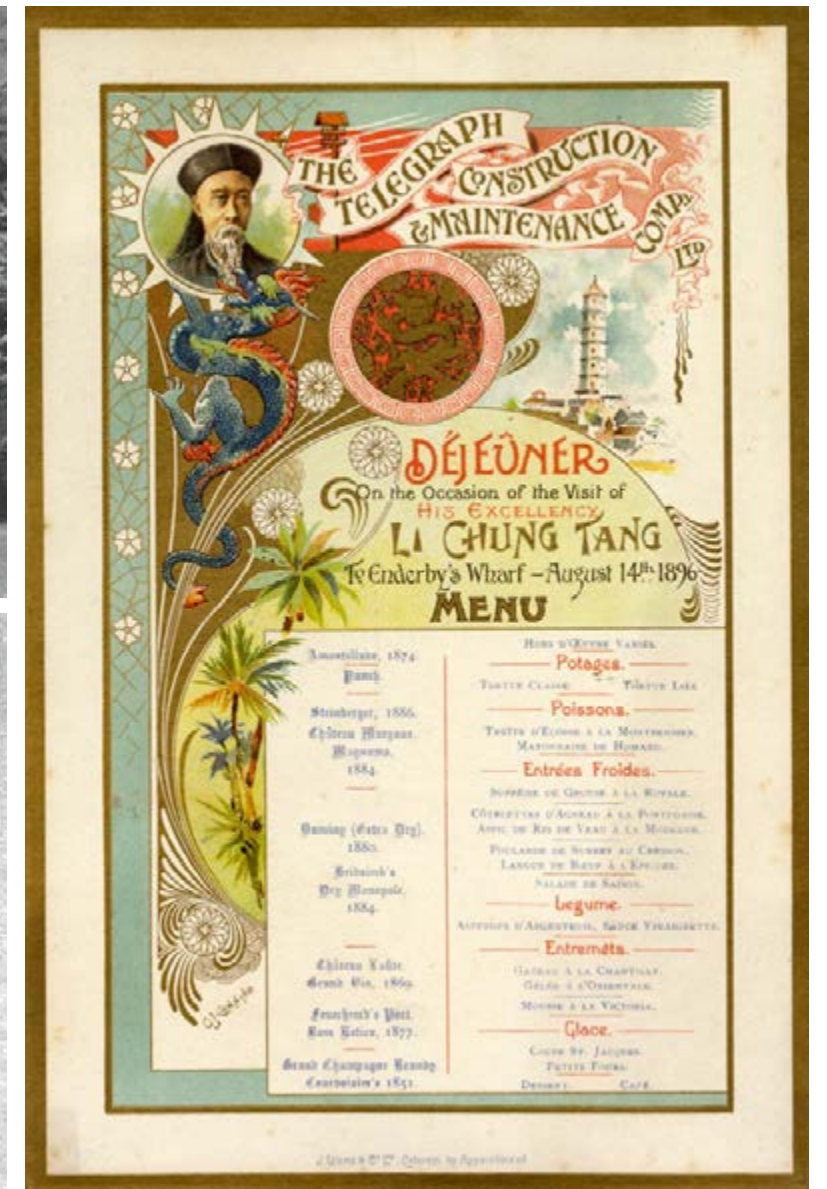 THE TELEGRAPH CONSTRUCTION & MAINTENANCE COMPY. LTD
DÉJEÛNER
On the Occasion of the Visit of
HIS EXCELLENCY
LI CHUNG TANG
To Enderby's Wharf – August 14th 1896
MENU
Amontillado, 1874
Punch.
Steinberger, 1886.
Château Margaux.
Magnums.
1884.
(Extra Dry).
1880.
Dry Monopole,
1884.
Château
Grand Vin, 1869.
Feuerheerd's Port,
1877.
Grand Champagne Brandy
Courvoisier's 1851.
HORS D'ŒUVRE VARIÉS.
Potages.
TORTUE CLAIRE TORTUE LIÉE
Poissons.
MAYONNAISE DE HOMARD.
Entrées Froides.
SUPRÊME DE GROUSE À LA ROYALE.
CÔTELETTES D'AGNEAU À LA
ASPIC DE RIS DE VEAU À LA
POULARDE DE SURREY AU CRESSON.
LANGUE DE BŒUF À L'
SALADE DE SAISON.
Legume.
ASPERGES D'ARGENTEUIL, SAUCE VINAIGRETTE.
Entremêts.
GATEAU À LA CHANTILLY.
GELÉE À L'ORIENTALE.
MOUSSE À LA VICTORIA.
Glace.
COUPE ST. JACQUES.
PETITS FOURS.
DESSERT. CAFÉ.
by Appointment